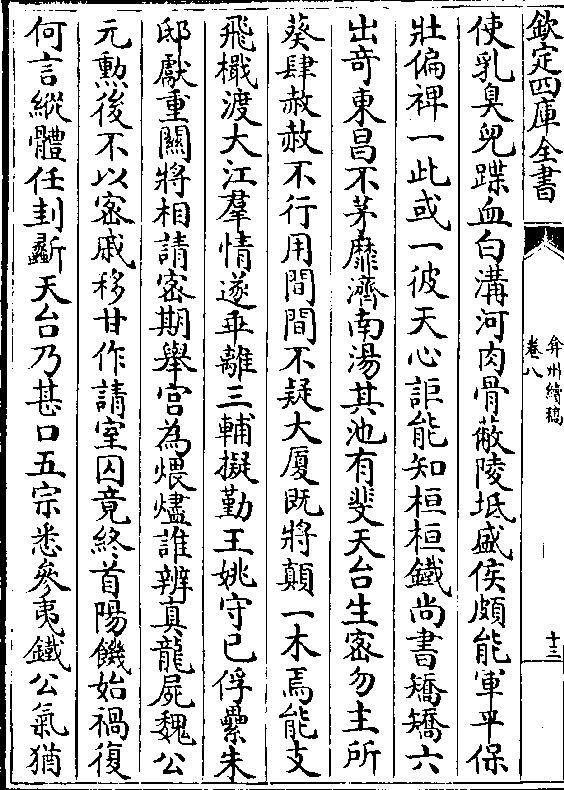 欽定四庫全書
弇州續稿
卷八
十三
使乳臭兒蹀血白溝河肉骨蔽陵坻盛侯頗能軍平保
壯偏裨一此或一彼天心詎能知桓桓鐵尚書矯矯六
出奇東昌不茅靡濟南湯其池有斐天台生密勿主所
葵肆赦赦不行用間間不疑大厦既將顛一木焉能支
飛檝渡大江羣情遂乖離三輔擬勤王姚守已俘纍朱
邸獻重關將相請密期舉宮為煨燼誰辨真龍屍魏公
元勲後不以密戚移甘作請室囚竟終首陽饑始禍復
何言縱體任刲斮天台乃甚口五宗悉參夷鐵公氣猶